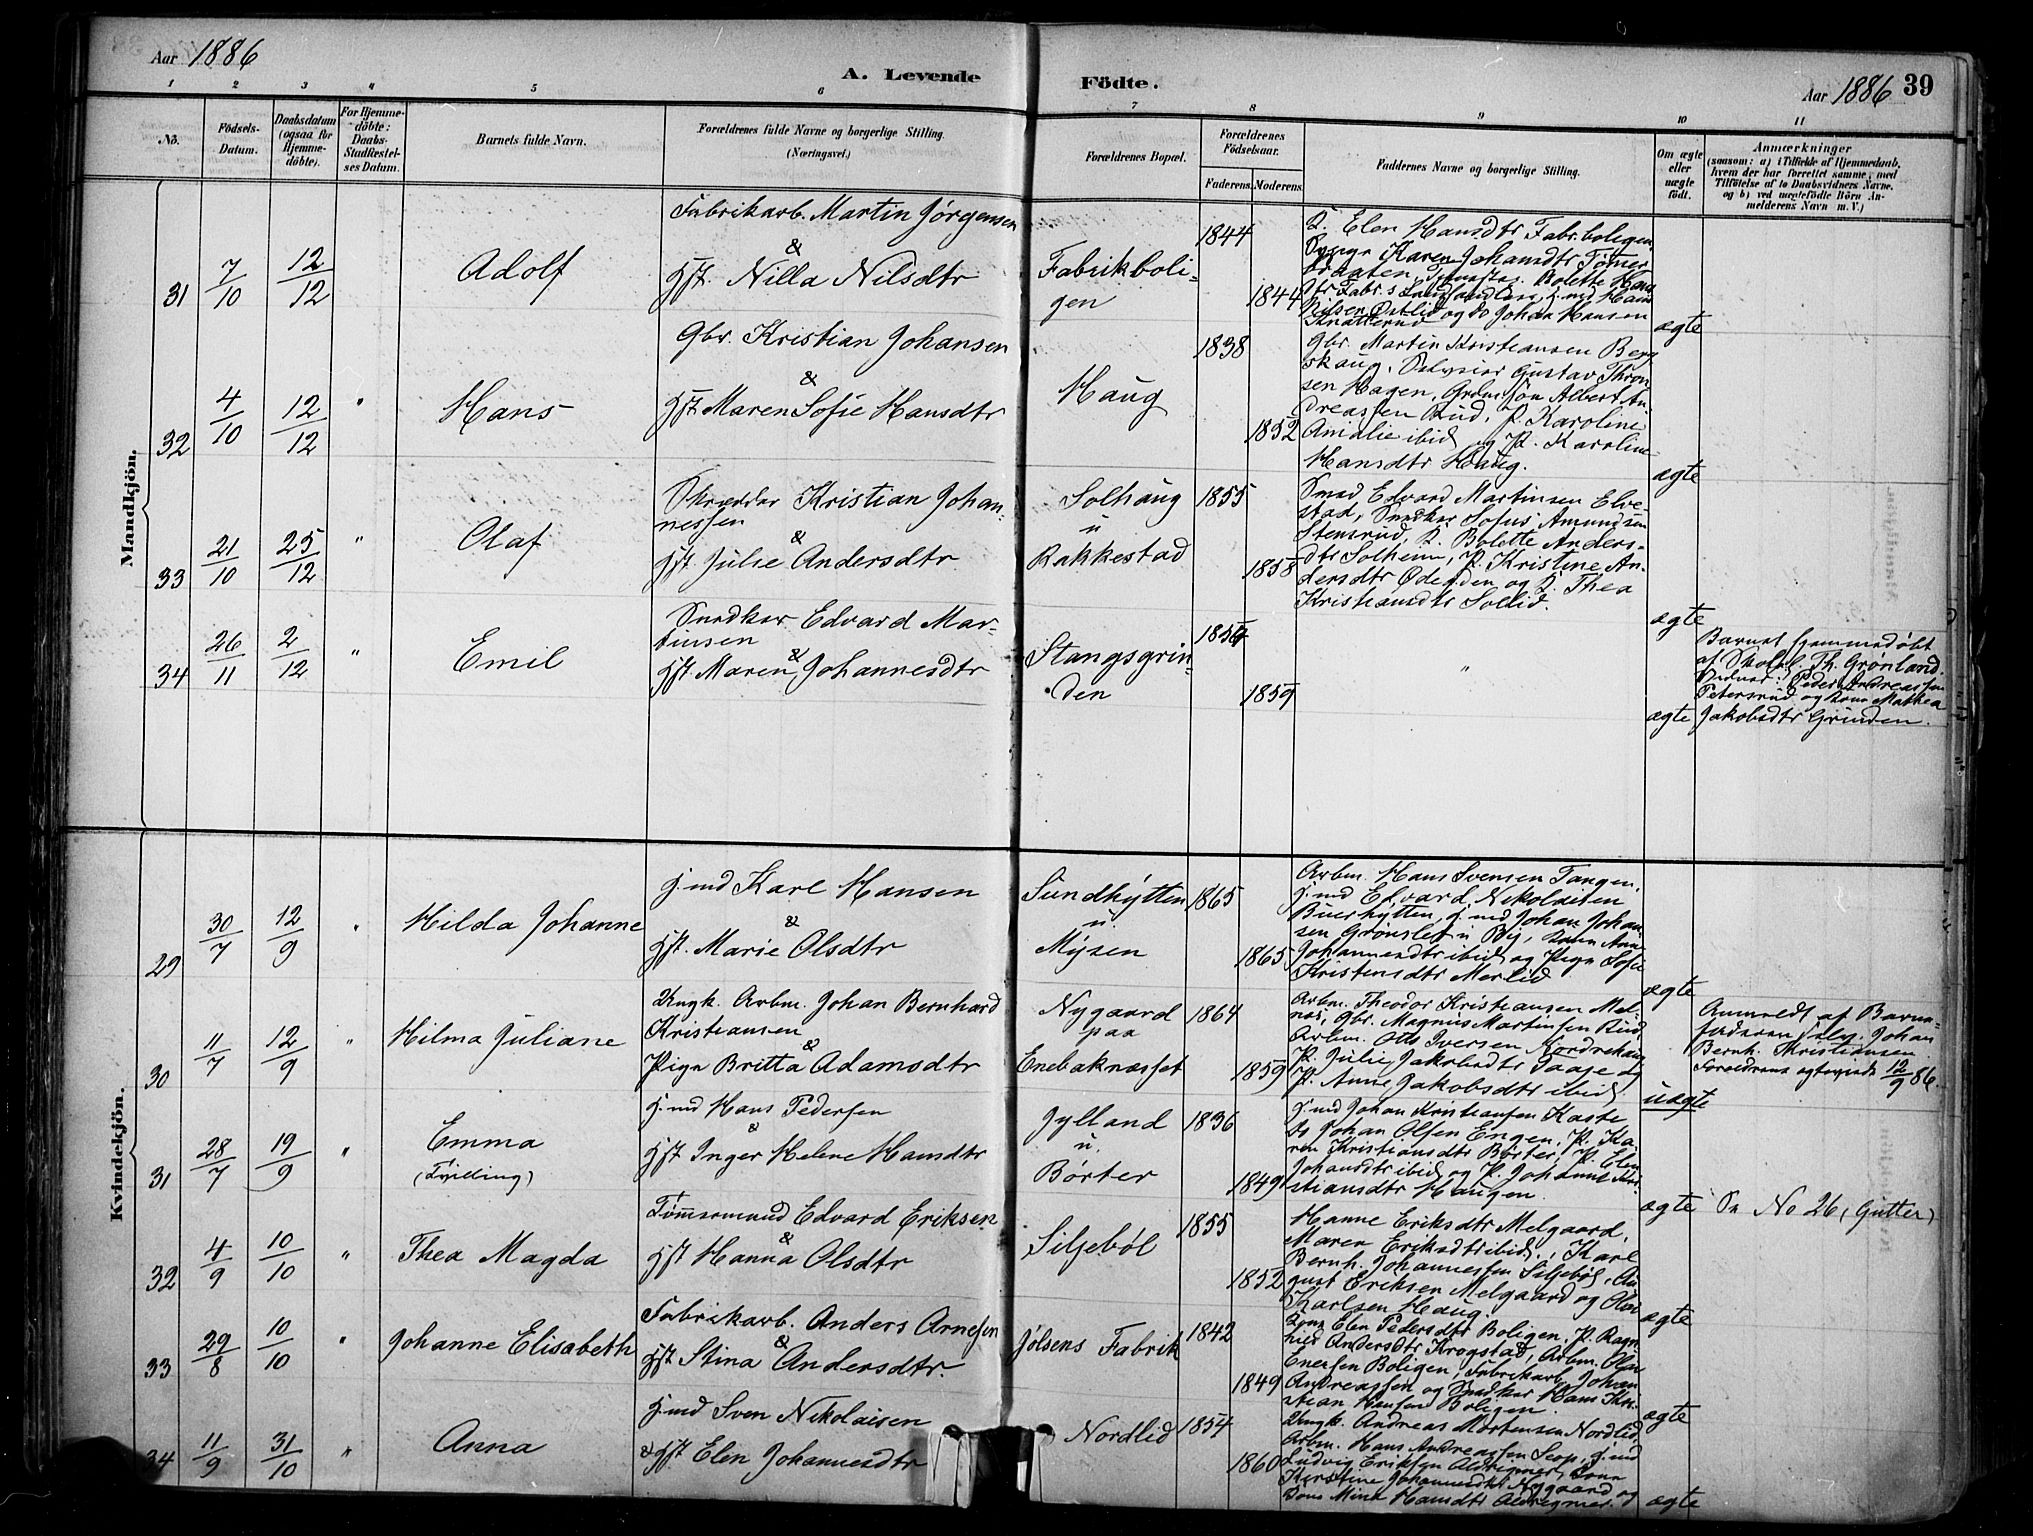 Aar 1886
A. Levende Födte.
Aar 1886 39
1 2 3 4 5 6 7 8 9 10 11
No.
Födsels-
Datum.
Daabsdatum
(ogsaa for
Hjemme-
döbte).
For Hjemme-
döbte:
Daabs-
Stadfæstel-
ses Datum.
Barnets fulde Navn.
Forældrenes fulde Navne og borgerlige Stilling.
(Næringsvei.)
Forældrenes Bopæl.
Forældrenes
Födselsaar.
Faderens. Moderens.
Faddernes Navne og borgerlige Stilling.
Om ægte
eller
uægte
födt.
Anmærkninger
(saasom: a) i Tilfælde af Hjemmedaab,
hvem der har forrettet samme, med
Tilföielse af to Daabsvidners Navne,
og b) ved uægtefödte Börn An-
melderens Navn m. V.)
Mandkjön.
31 7/10 12/12
Adolf
Fabrikarb. Martin Jørgensen
&
Gft. Nilla Nilsdtr
Fabrikboli-
gen
1844
1844
P. Elen Hansdtr Fabr.boligen
Karen Johansdtr Tømer
Bolette Han
Nilsen Østlid og do Johan Hansen
Knatterud
ægte
32 4/10 12/12 "
Hans
Gbr. Kristian Johansen
&
Gft. Maren Sofie Hansdtr
Haug
1838
1852
Gbr Martin Kristiansen Berg
skaug, Gustav Thron
sen Hagen, Grdm. søn Albert An-
dreassen Rud, P. Karoline
Amalie ibid og P. Karoline
Hansdtr Haug.
ægte
33 21/10 25/12 "
Olaf
Skrædder Kristian Johan-
nessen
&
Gft Julie Andersdtr
Solhaug
u
Rakkestad
1855
1858
Smed Edvard Martinsen Elve-
stad, Snedker Sofus Amundsen
Stensrud, P. Bolette Anders-
dtr Solheim, P. Kristine An-
dersdtr Ødegden og P. Thea
Kristiansdtr Sollid.
ægte
34 26/11 2/12 "
Emil
Snedker Edvard Mar-
tinsen
&
Gft. Maren Johannesdtr
Stangsgrin-
den
1859
"
ægte
Barnet hjemmedøbt
af Skoll. Th. Grønland.
Vidner: Peder Andreassen
Petersrud og Kone Mathea
Jakobsdtr Grinden.
Kvindekjön.
29 30/7 12/9 "
Hilda Johanne
J.md Karl Hansen
&
Gft. Marie Olsdtr
Sundhytten
u.
Mysen
1865
1865
Arbm. Hans Svensen Tangen,
J.md Edvard Nikolaisen
Buerhytten, J.md Johan Johan-
sen Grønslet u By, Kone Anne
Johannesdtr ibid og Pige Sofie
Kristensdtr Merlid
ægte
30 11/7 12/9 "
Hilma Juliane
Ungk. Arbm. Johan Bernhard
Kristiansen
&
Pige Britta Adamsdtr
Nygaard
paa
Enebaknæsset
1864
1859
Arbm. Theodor Kristiansen Mel-
næs, Gbr. Magnus Martinsen Rud,
Arbm. Otto Iversen Nordrehaug
P. Julie Jakobsdtr Daase og
P. Anne Jakobsdtr ibid.
uægte
Anmeldt af Barne-
faderen Selv. Johan
Bernh. Kristiansen.
Forældrene ægteviede 12/9 86.
31 28/7 19/9 "
Emma
(Tvilling)
J.md Hans Pedersen
&
Gft Inger Helene Hansdtr
Jylland
u.
Børter
1836
1849
J.md Johan Kristiansen Kaste
Do Johan Olsen Engen, P. Ka-
ren Kristiansdtr Børter, P. Elen
Johansdtr ibid og P. Johanne Kri-
stiansdtr Haugen.
ægte
Se No 26 (Gutter)
32 4/9 10/10 "
Thea Magda
Tømmermand Edvard Eriksen
&
Gft Hanna Olsdtr
Siljebøl
1855
1852
Hanne Eriksdtr Melgaard,
Maren Eriksdtr ibid., Karl
Bernh. Johannessen Siljebøl, Au-
gust Eriksen Melgaard og
Karlsen Haug.
ægte
33 29/8 10/10 "
Johanne Elisabeth
Fabrikarb. Anders Arnesen
&
Gft Stina Andersdtr.
Jølsens Fabrik
1842
1849
Kone Elen Pedersdtr Boligen, P. Ragn-
hild Andersdtr Krogstad, Arbm. Olai
Enersen Boligen, Fabrikarb. Johan
Andreassen og Snedker Hans Kri-
stian Hansen Boligen.
ægte
34 11/9 31/10 "
Anna
J.md Sven Nikolaisen
& Gft Elen Johannesdtr
Nordlid
1854
1860
Ungk. Andreas Mortensen Nordlid,
Arbm. Hans Andreassen J.md
Ludvig Eriksen Kone
Kirstine Johannesdtr Nygaard og
Kone Mina Hansdtr
ægte